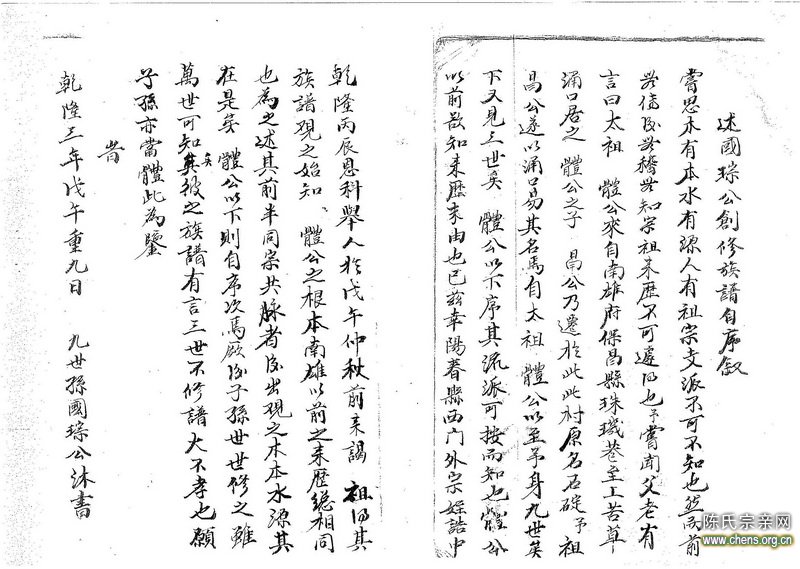 述國琮公創修族譜自序叙
嘗思木有本水有源人有祖宗支派不可不知也然前
無徵後無稽無知宗祖来歷不可遽也予嘗聞父老有
言曰太祖 體公來自南雄府保昌縣珠璣巷至上苔草
涌口居之 體公之子 昌公乃遷於此此村原名石碇予祖
昌公遂以涌口易其名焉自太祖 體公以至予身九世矣
下又見三世矣 體公以下序其流派可按而知也體公
以前欲知来歷来由也已兹幸陽春縣西门外宗姪誥中
乾隆丙辰恩科舉人於戊午仲秋前来謁 祖得其
族譜現之始知 體公之根本南雄以前之来歷總相同
也為之述其前半同宗共脉者後出現之木本水源其
在是矣 體公以下則自序次焉厥後子孫世世修之雖
萬世可知矣彼之族譜有言三世不修譜大不孝也願
子孫亦當體此為鑒
旹
乾隆三年戊午重九日 九世孫國琮公沐書
陈氏宗亲网
www.chens.org.cn